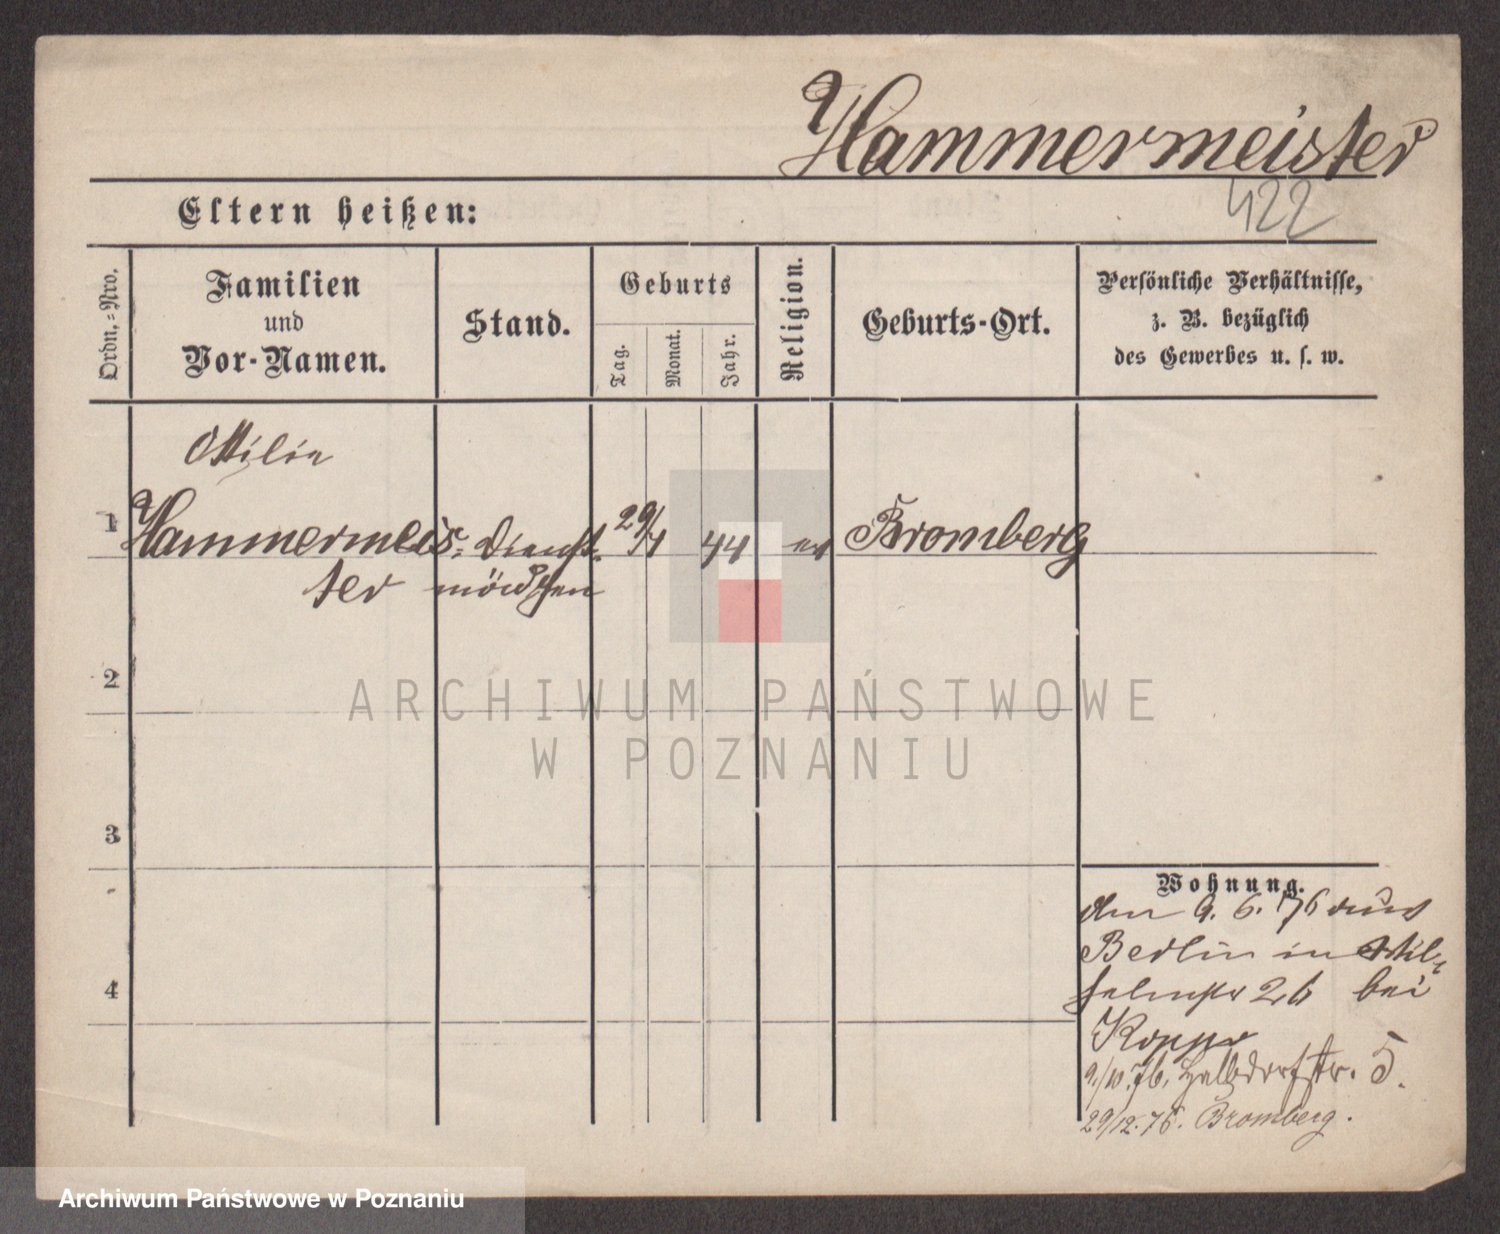 Hammermeister
422
Eltern heißen:
Ordn.=Nro.
Familien
und
Vor-Namen.
Stand.
Geburts
Tag.
Monat.
Jahr.
Religion.
Geburts-Ort.
Persönliche Verhältnisse,
z. B. bezüglich
des Gewerbes u. s. w.
Ottilie
1 Hammermeis= Dienst= 29/ 44 ev Bromberg
ter mädchen
2
ARCHIWUM PAŃSTWOWE
W POZNANIU
3
4
Wohnung.
den 9. 6. 76 aus
Berlin in Wil=
helmstr 26 bei
Koppe
9/10.76. Halbdorfstr. 5.
29/12.76. Bromberg.
Archiwum Państwowe w Poznaniu